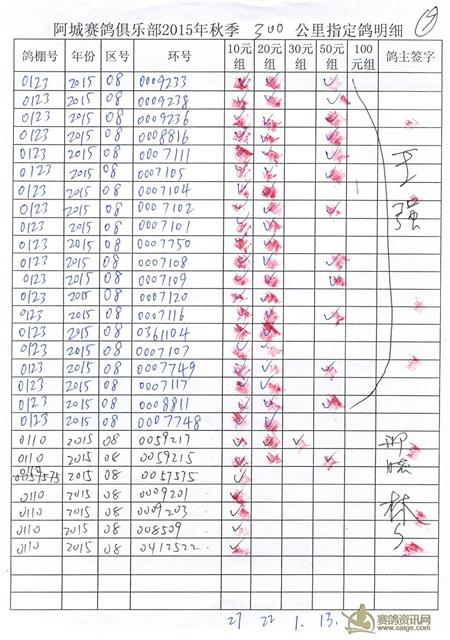 阿城赛鸽俱乐部2015年秋季 300 公里指定鸽明细
鸽棚号 年份 区号 环号 10元组 20元组 30元组 50元组 100元组 鸽主签字
0123 2015 08 0009233 ✓ ✓ ✓
0123 2015 08 0009238 ✓ ✓ ✓
0123 2015 08 0009236 ✓ ✓ ✓
0123 2015 08 0008816 ✓ ✓ ✓
0123 2015 08 0007111 ✓ ✓ ✓
0123 2015 08 0007105 ✓ ✓ ✓
0123 2015 08 0007104 ✓ ✓
0123 2015 08 0007102 ✓ ✓ ✓
0123 2015 08 0007101 ✓ ✓
0123 2015 08 0007750 ✓ ✓
0123 2015 08 0007108 ✓ ✓ ✓
0123 2015 08 0007109 ✓ ✓ ✓
0123 2015 08 0007120 ✓ ✓
0123 2015 08 0007116 ✓ ✓ ✓
0123 2015 08 0361104 ✓ ✓
0123 2015 08 0007107 ✓ ✓
0123 2015 08 0007749 ✓ ✓ ✓
0123 2015 08 0007117 ✓ ✓
0123 2015 08 0008811 ✓ ✓ ✓
0123 2015 08 0007748 ✓ ✓
王强
0110 2015 08 0059217 ✓ ✓ ✓
0110 2015 08 0059215 ✓ ✓ ✓
0110 2015 08 0057575 ✓
0110 2015 08 0009201 ✓
0110 2015 08 0009203 ✓
0110 2015 08 008509 ✓
0110 2015 08 0412522 ✓
林
27 22 1. 13.
赛鸽资讯网
www.saige.com